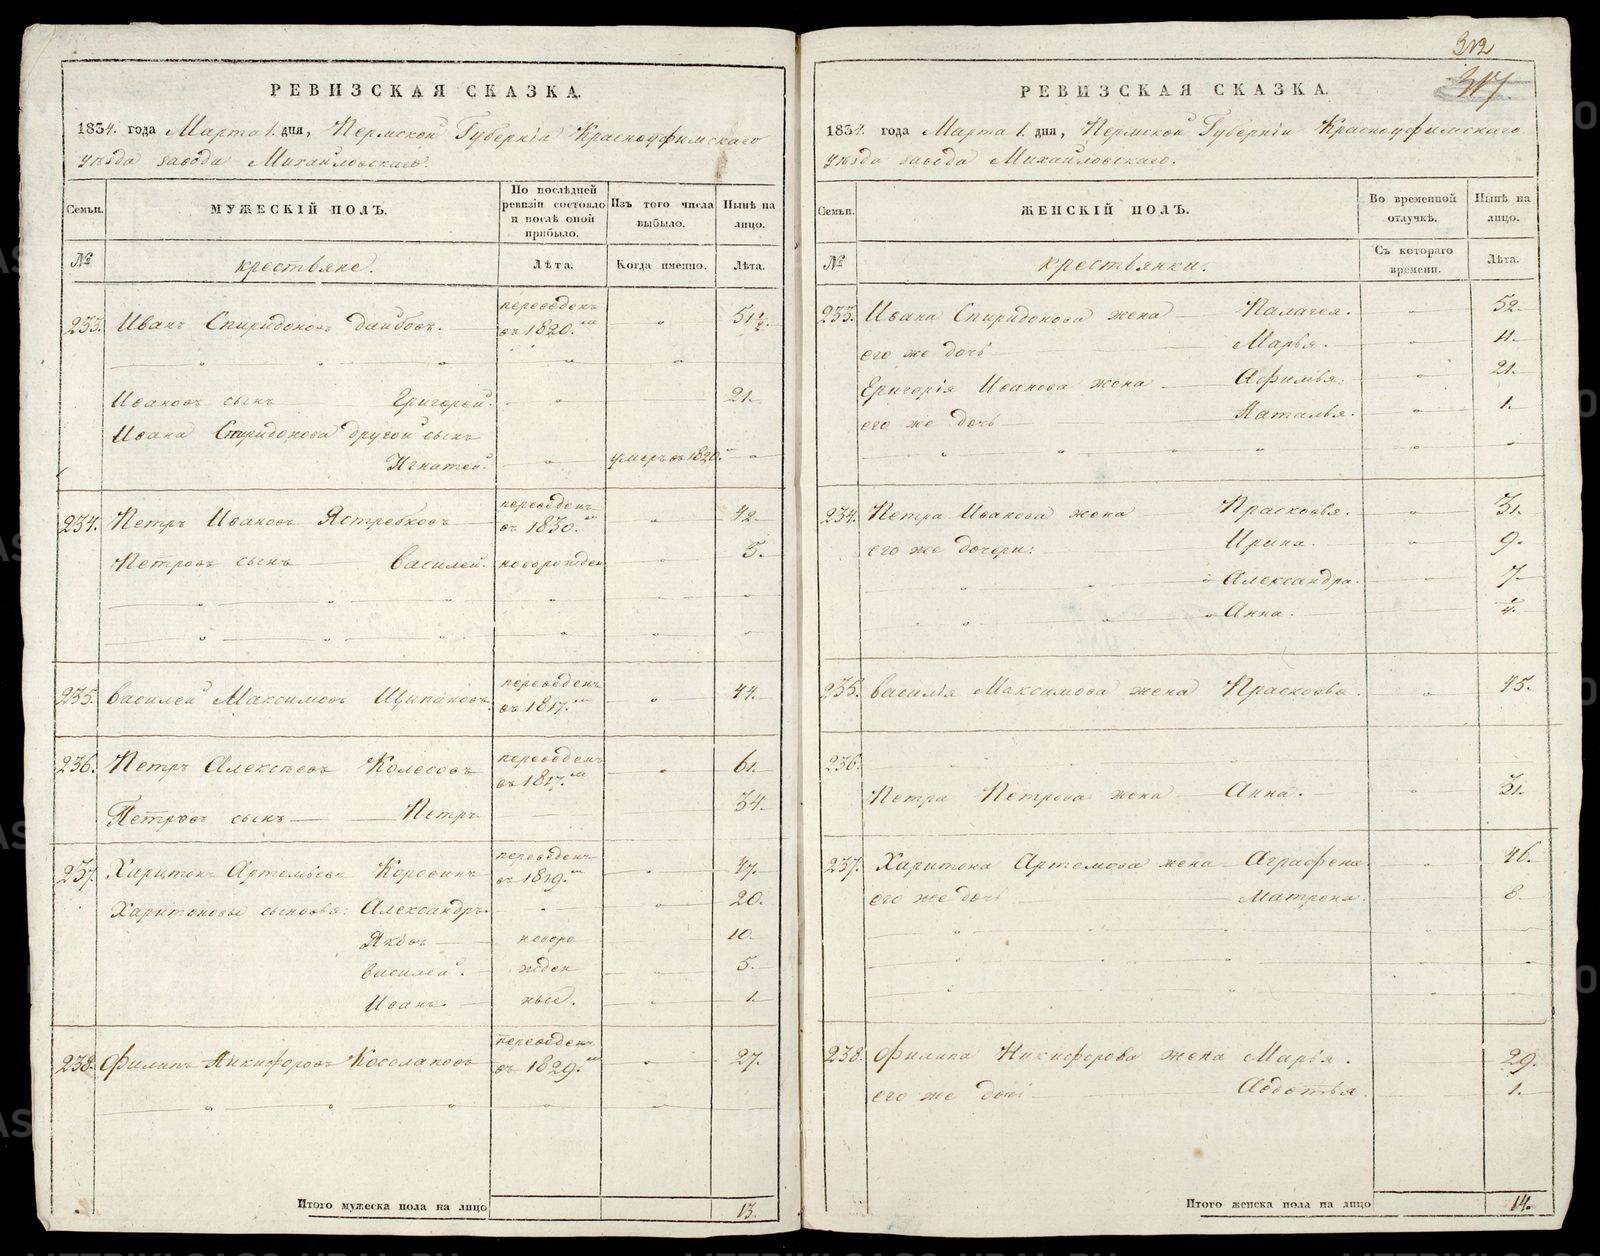 312
317
РЕВИЗСКАЯ СКАЗКА.
1834. года Марта 1. дня, Пермской Губернiи Красноуфимскаго
уѣзда завода Михайловскаго.
Семьи.
МУЖЕСКIЙ ПОЛЪ.
По послѣдней ревизiи состояло и послѣ оной прибыло.
Изъ того числа выбыло.
Нынѣ на лицо.
№
крестьяне.
Лѣта.
Когда именно.
Лѣта.
переведенъ
233. Иванъ Спиридоновъ въ 1820. 51½
Ивановъ сынъ Григорей. 21.
Ивана Спиридонова другой сынъ
Игнатей. умеръ въ 1820.
переведенъ
234. Петръ Ивановъ Ястребковъ въ 1830. 42.
Петровъ сынъ Василей. новорожден 5.
переведенъ
235. Василей Максимовъ Щипановъ. въ 1817. 44.
переведенъ
236. Петръ Алексѣевъ Колесовъ въ 1817. 61.
Петровъ сынъ Петръ 34.
переведенъ
237. Харитонъ Артемьевъ Коровинъ въ 1829. 47.
Харитоновы сыновья: Александръ. 20.
Яковъ новоро 10.
Василей. жден 5.
Иванъ ные. 1.
переведенъ
238. Филипъ Никифоровъ Косолаповъ въ 1829. 27.
Итого мужеска пола на лицо 13.
РЕВИЗСКАЯ СКАЗКА.
1834. года Марта 1. дня, Пермской Губернiи Красноуфимскаго
уѣзда завода Михайловскаго.
Семьи.
ЖЕНСКIЙ ПОЛЪ.
Во временной отлучкѣ.
Нынѣ на лицо.
№
крестьянки.
Съ котораго времени.
Лѣта.
233. Ивана Спиридонова жена Палагея. 52.
его же дочь Марья. 11.
Григорiя Иванова жена Афимья. 21.
его же дочь Наталья. 1.
234. Петра Иванова жена Прасковья. 31.
его же дочери: Ирина. 9.
Александра. 7.
Анна.
235. Василiя Максимова жена Прасковья. 45.
236.
Петра Петрова жена Анна. 31.
237. Харитона Артемова жена Аграфена 46.
его же дочь Матрона. 8.
238. Филипа Никифорова жена Марья. 29.
его же дочь Авдотья 1.
Итого женска пола на лицо 14.
METRIKI.GASO-URAL.RU